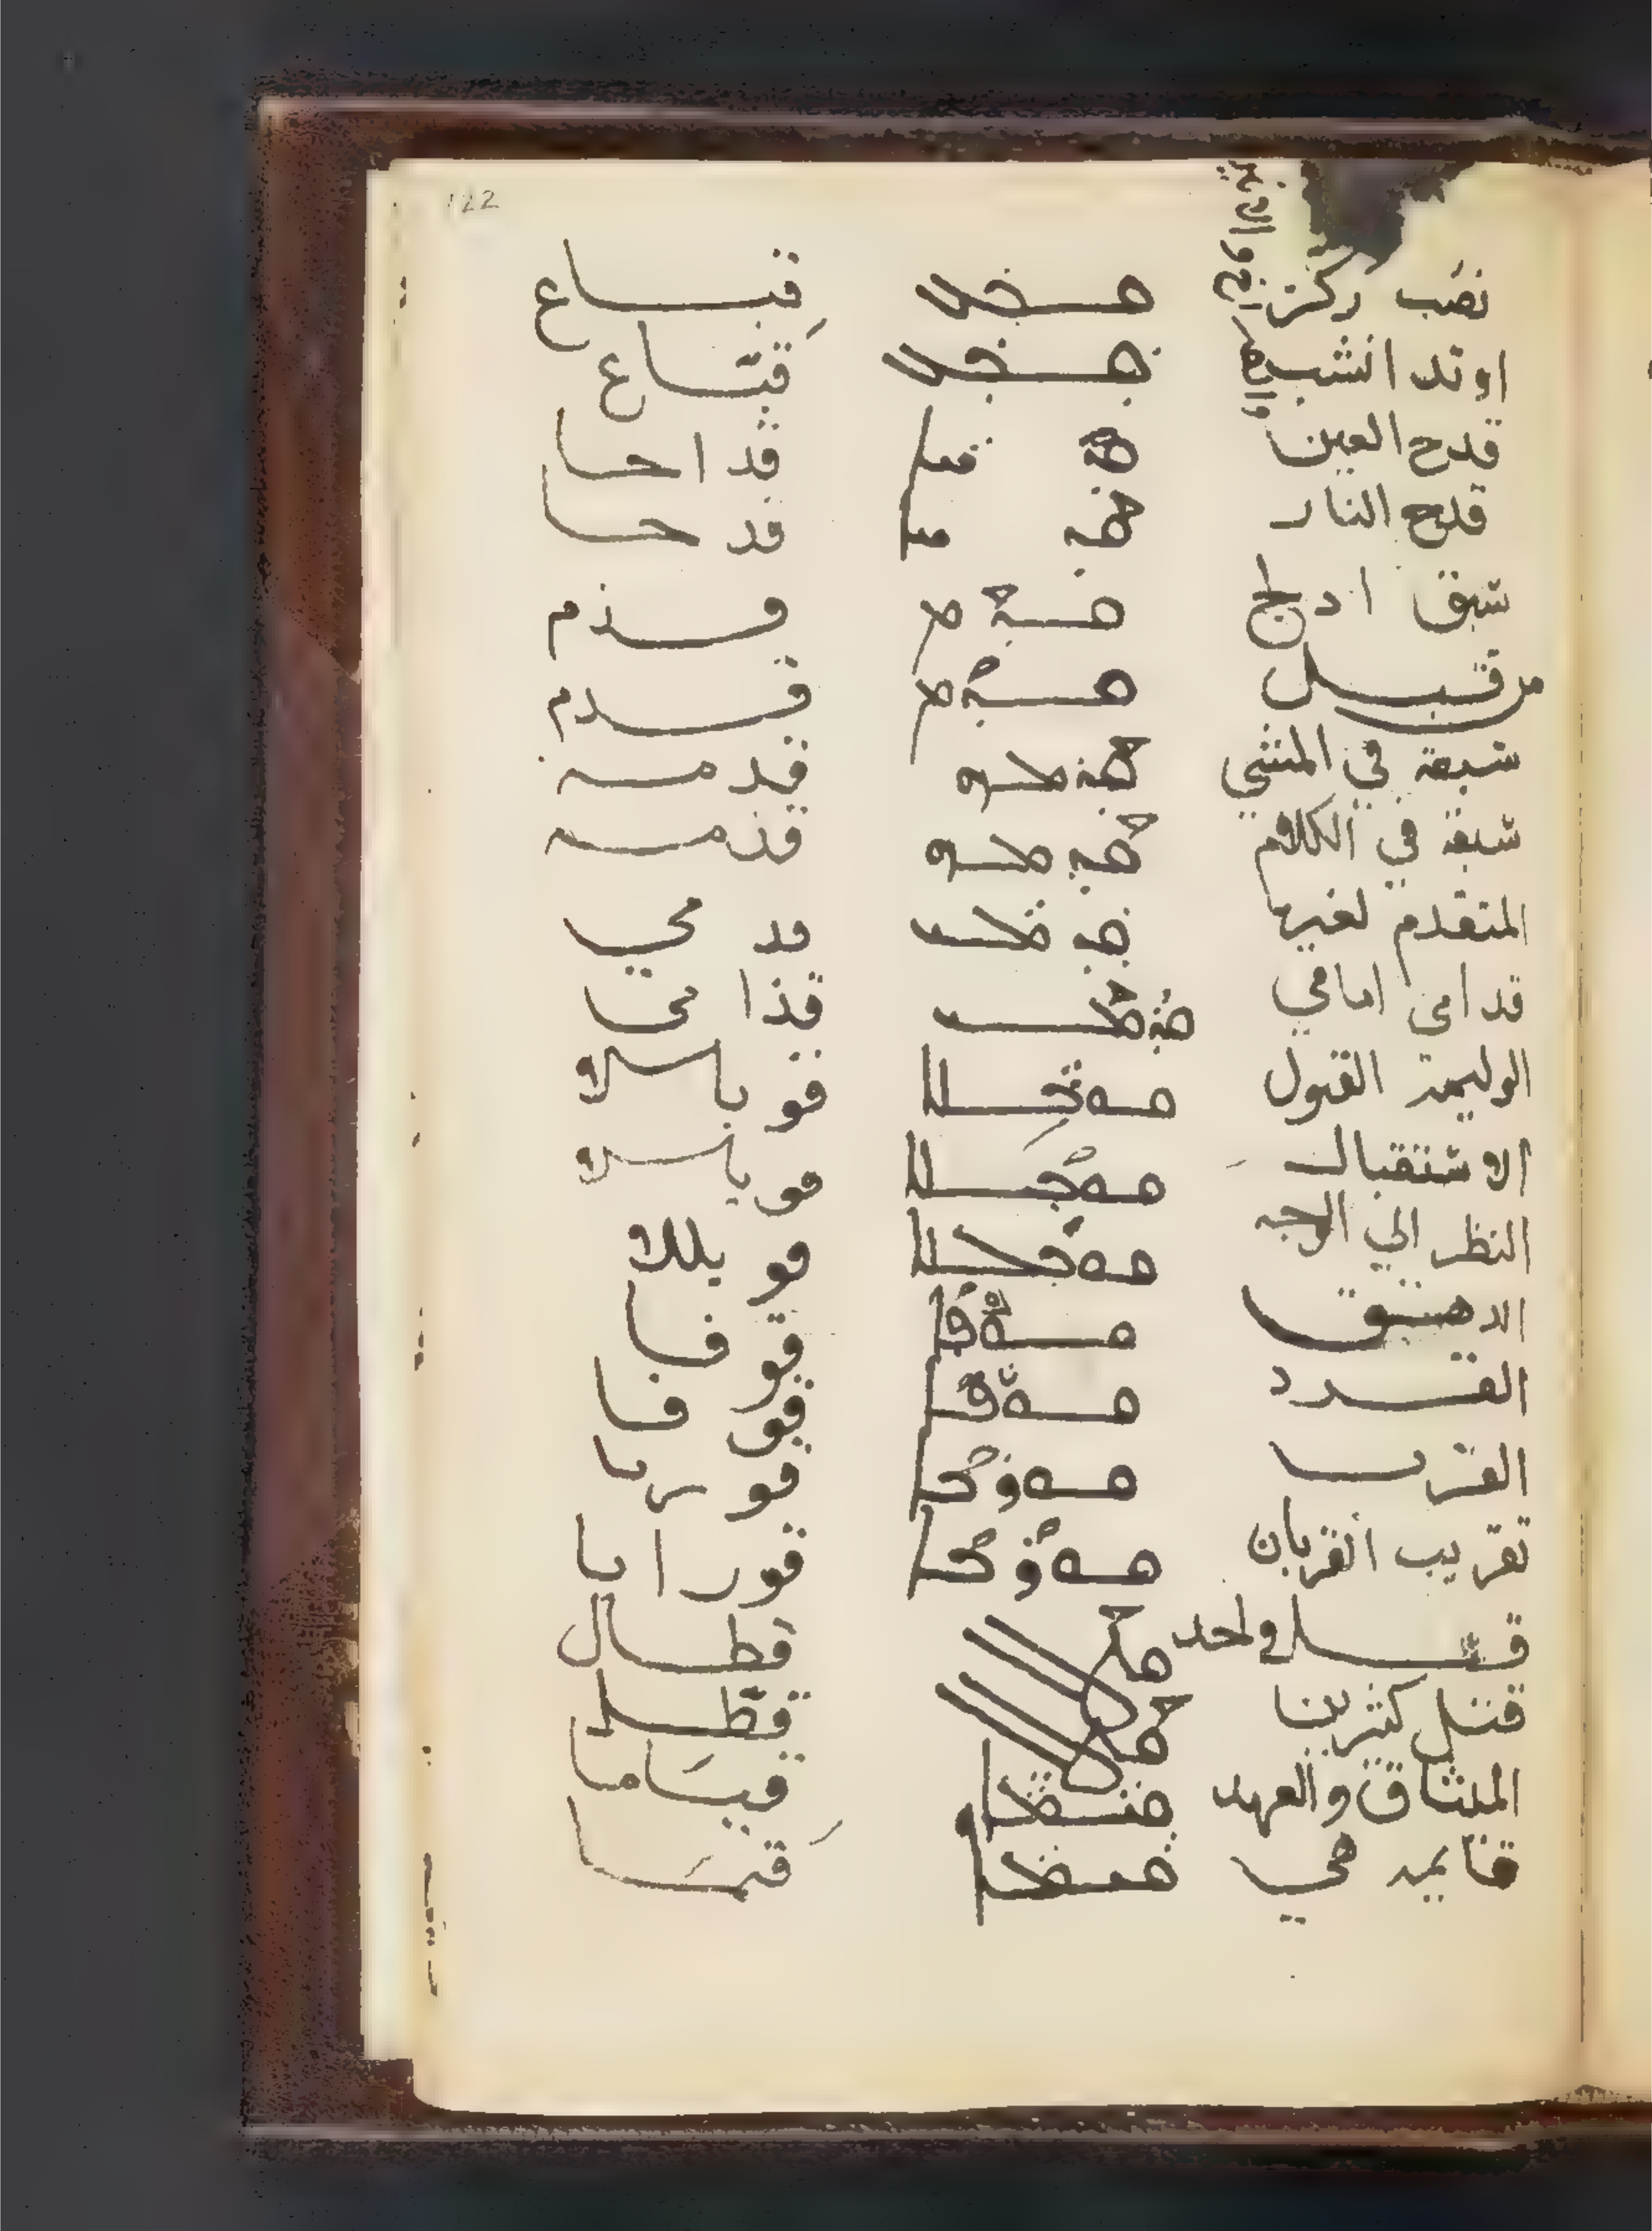 122
نصب ركز ܩܒܥ قبــاع
اوتد انشب ܩܒܥ قبّــاع
قدح العين ܩܕܚܐ قد ا حا
قدح النار ܩܕܚܐ قد حا
سبق ادلج ܩܕܡ قــذم
من قبــل ܩܕܡ قــدم
سبعه في المشي قدمــه
سبقه في الكلام قذمــه
المتقدم لغيره ܩܕܡܝ قد مي
قدامي امامي ܩܕܡܝ قذا مي
الوليمه القبول ܩܘܒܠܐ قو بالا
الاستقبال ܩܘܒܠܐ قو بالا
النظر الي الوجه ܩܘܒܠܐ قو بلا
القــرد ܩܘܦܐ قو فا
القرب ܩܘܪܒܐ قو ر با
تقريب القربان ܩܘܪܒܐ قور ا با
قتــل واحد ܩܛܠ قطــال
قتل كثيرين ܩܛܠ قطّــل
الميثاق والعهد ܩܝܡܐ قيــاما
قايمه هي ܩܝܡܐ قيمــا